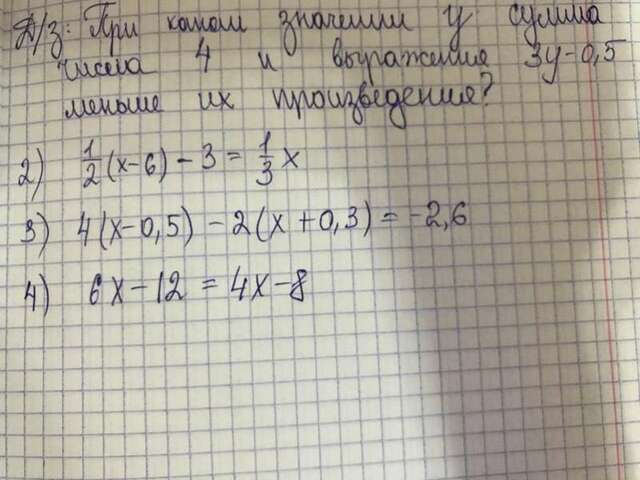 Д/з: При каком значении y сумма
числа 4 и выражение 3y-0,5
меньше их произведение?
2) 1/2 (x-6) - 3 = 1/3 x
3) 4(x-0,5) - 2(x+0,3) = -2,6
4) 6x-12 = 4x-8